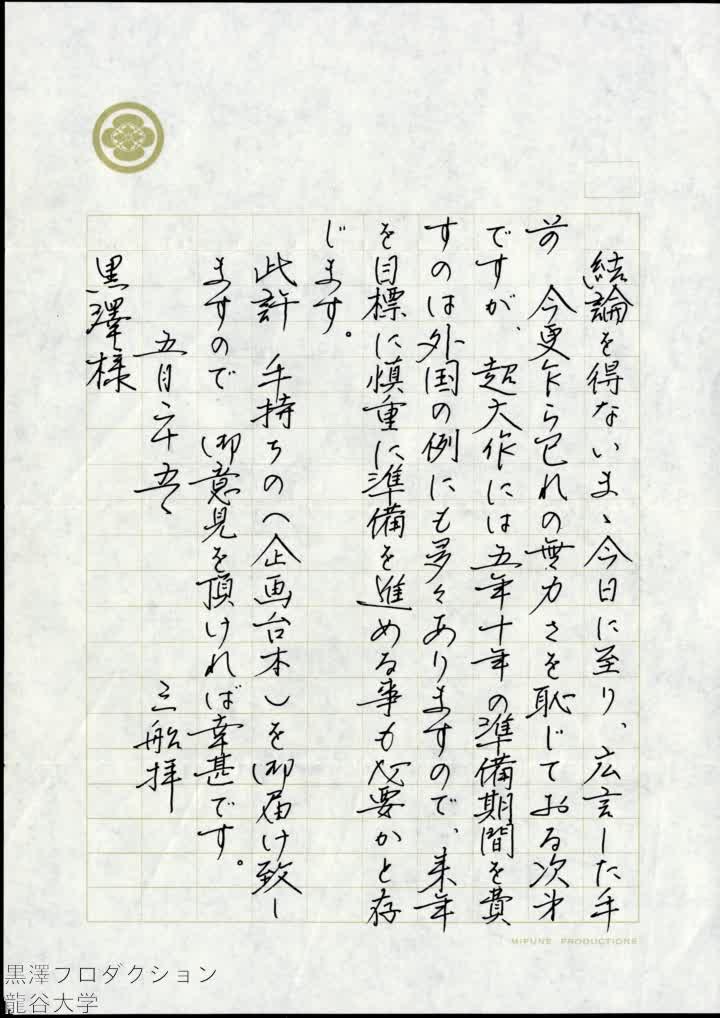 結論を得ないまゝ今日に至り、広言した手
前　今更乍ら己れの無力さを恥じておる次第
ですが、超大作には五年十年の準備期間を費
すのは外国の例にも多々ありますので、来年
を目標に慎重に準備を進める事も必要かと存
じます。
此許　手持ちの（企画台本）を御届け致し
ますので　御意見を頂ければ幸甚です。
五月
三船拝
黒澤様
MIFUNE PRODUCTIONS
黒澤プロダクション
龍谷大学